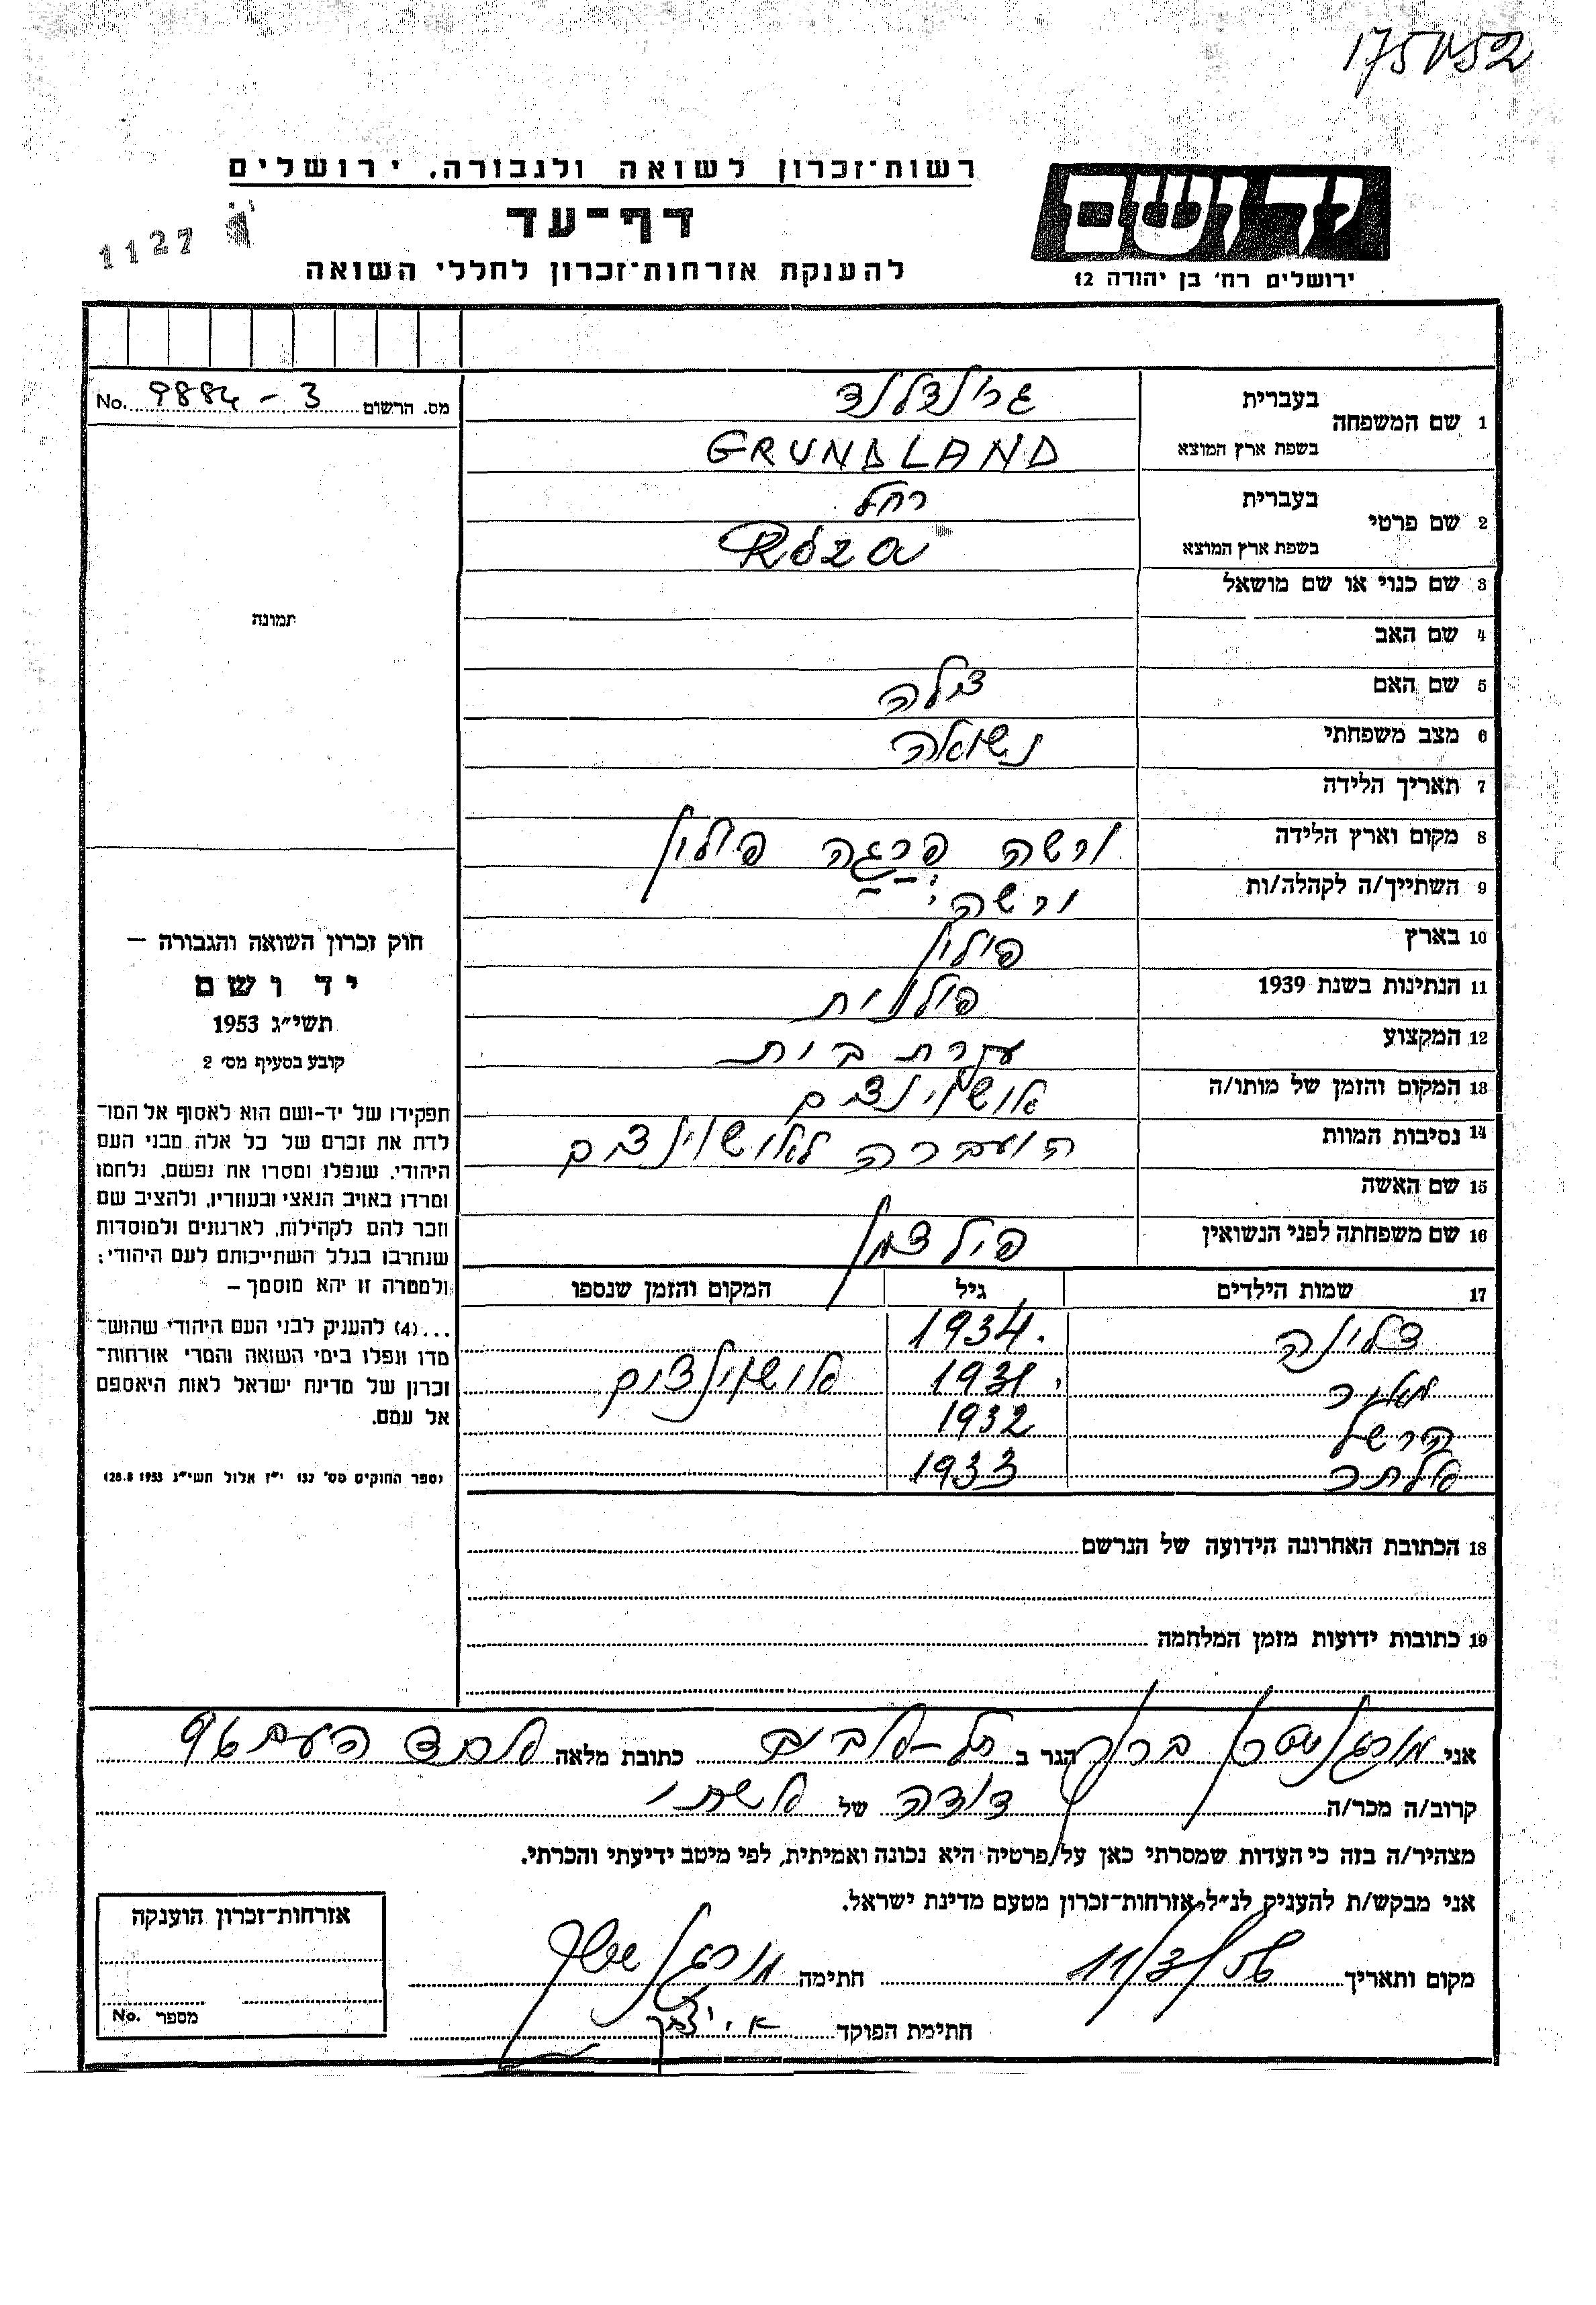 175152
רשות־זכרון לשואה ולגבורה. ירושלים
יד ושם
דף־עד
1127
להענקת אזרחות־זכרון לחללי השואה
ירושלים רח' בן יהודה 12
מס. הרשום 9884 - 3 No.
1 שם המשפחה
בעברית גרינלדלנד
בשפת ארץ המוצא GRUNDLAND
2 שם פרטי
בעברית רחל
בשפת ארץ המוצא Róza
3 שם כנוי או שם מושאל
4 שם האב
5 שם האם צילה
6 מצב משפחתי נשואה
7 תאריך הלידה
8 מקום וארץ הלידה ורשה פרגה פולין
9 השתייך/ה לקהלה/ות ורשה
10 בארץ פולין
11 הנתינות בשנת 1939 פולנית
12 המקצוע עקרת בית
13 המקום והזמן של מותו/ה אושוינצים
14 נסיבות המוות הועברה לאושוינצים
15 שם האשה
16 שם משפחתה לפני הנשואין פילצמן
17 שמות הילדים גיל המקום והזמן שנספו
צלינה 1934
מאניר 1931 אושוינצים
הרשל 1932
אלתר 1933
18 הכתובת האחרונה הידועה של הנרשם
19 כתובות ידועות מזמן המלחמה
תמונה
חוק זכרון השואה והגבורה —
יד ושם
תשי״ג 1953
קובע בסעיף מס׳ 2
תפקידו של יד-ושם הוא לאסוף אל המו־
לדת את זכרם של כל אלה מבני העם
היהודי, שנפלו ומסרו את נפשם, נלחמו
ומרדו באויב הנאצי ובעוזריו, ולהציב שם
וזכר להם לקהילות, לארגונים ולמוסדות
שנחרבו בגלל השתייכותם לעם היהודי;
ולמטרה זו יהא מוסמך —
...(4) להעניק לבני העם היהודי שהוש־
מדו ונפלו בימי השואה והמרי אזרחות־
זכרון של מדינת ישראל לאות היאספם
אל עמם.
(ספר החוקים מס׳ 132 י״ז אלול תשי״ג 28.8.1953)
אני ברוך הגר ב תל-אביב כתובת מלאה אחד העם 96
קרוב/ה מכר/ה דודה של אשתי
מצהיר/ה בזה כי העדות שמסרתי כאן על פרטיה היא נכונה ואמיתית, לפי מיטב ידיעתי והכרתי.
אני מבקש/ת להעניק לנ״ל אזרחות־זכרון מטעם מדינת ישראל.
מקום ותאריך 11/3/56 חתימה
חתימת הפוקד
אזרחות־זכרון הוענקה
מספר No.